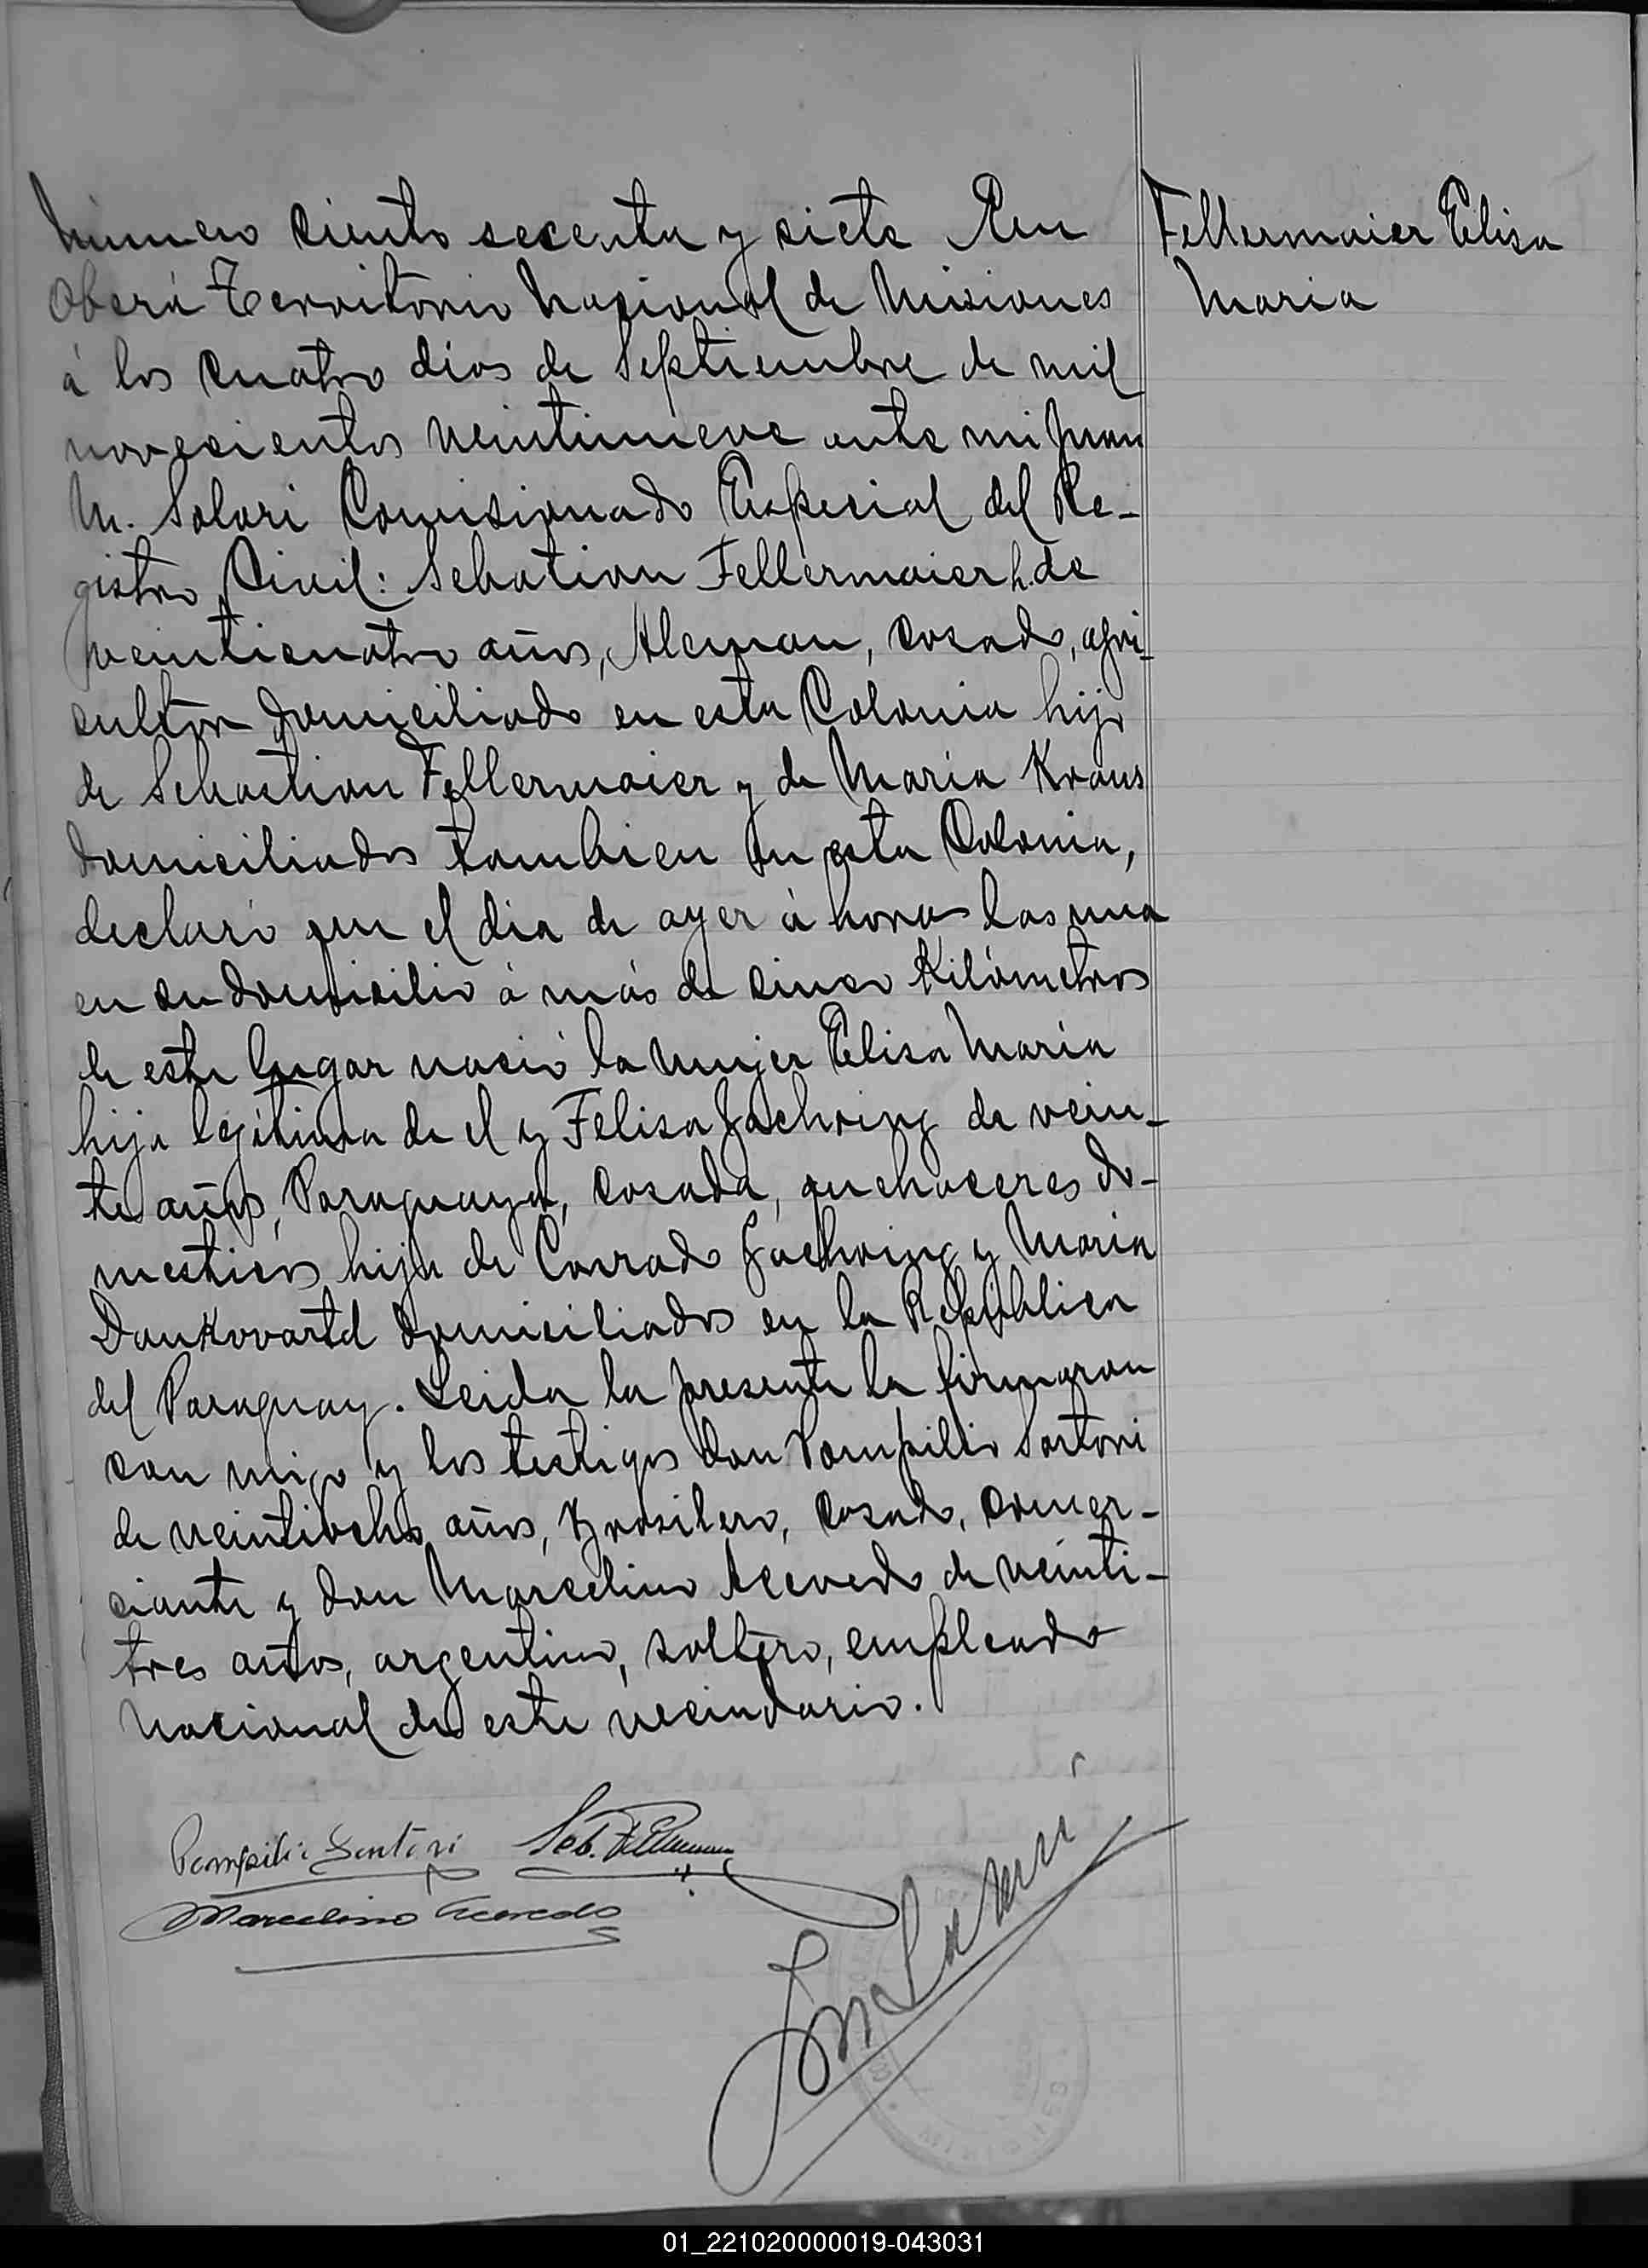 Número ciento secenta y siete En
Oberá Territorio Nacional de Misiones
á los cuatro dias de Septiembre de mil
novecientos veintinueve ante mi Juan
M. Solari Comisionado Especial del Re-
gistro Civil: Sebatian Fellermaier h. de
veinticuatro años, Aleman, casado, agri-
cultor domiciliado en esta Colonia hijo
de Sebastian Fellermaier y de Maria Kraus
domiciliados tambien en esta Colonia,
declaró que el dia de ayer á horas las una
en su domicilio á más de cinco Kilómetros
de este lugar nació la mujer Elisa Maria
hija legítima de el y Felisa Jachring de vein-
te años, Paraguaya, casada, quehaceres do-
mesticos hija de Conrado Jachring y Maria
Dankwartd domiciliados en la República
del Paraguay. Leida la presente la firmaron
con migo y los testigos don Pompilio Sartori
de veintiocho años, Brasilero, casado, comer-
ciante y don Marcelino Acevedo de veinti-
tres años, argentino, soltero, empleado
Nacional de este vecindario.
Fellermaier Elisa
Maria
Pompilio Sartori Seb. Fellermaier
Marcelino Acevedo
J M Solari
MISIONES
01_221020000019-043031